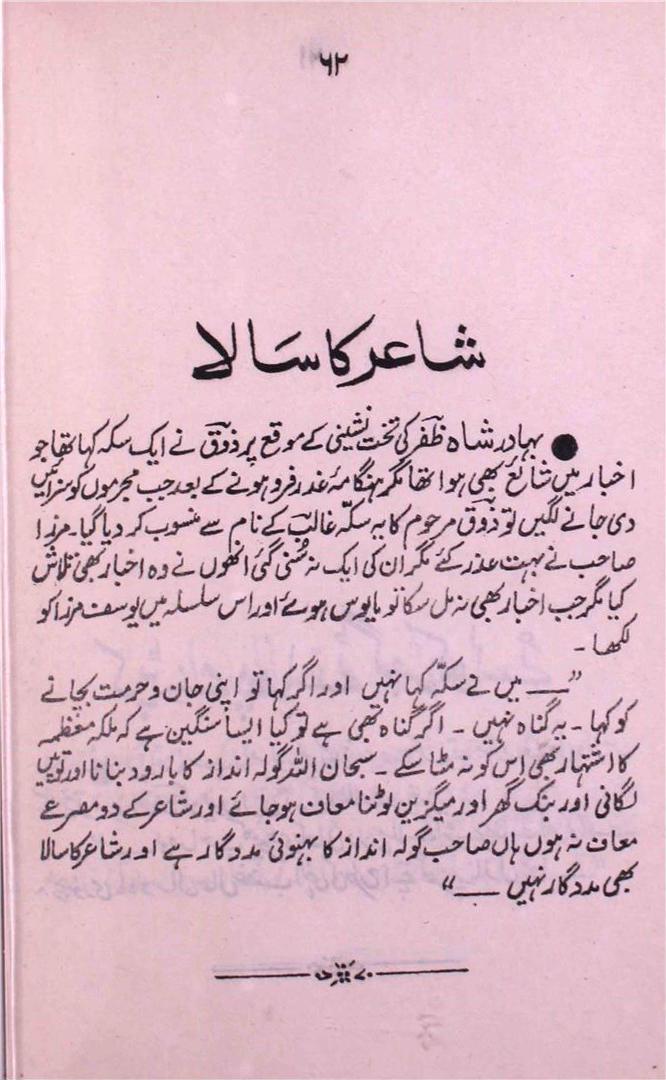 ۶۲
شاعر کا سالا
● بہادر شاہ ظفر کی تخت نشینی کے موقع پر ذوق نے ایک سکہ کہا تھا جو
اخبار میں شائع بھی ہوا تھا مگر ہنگامۂ غدر فرو ہونے کے بعد جب مجرموں کو سزائیں
دی جانے لگیں تو ذوق مرحوم کا یہ سکّہ غالب کے نام سے منسوب کر دیا گیا۔ مرزا
صاحب نے بہت عذر کئے مگر ان کی ایک نہ سُنی گئی انھوں نے وہ اخبار بھی تلاش
کیا مگر جب اخبار بھی نہ مل سکا تو مایوس ہوئے اور اس سلسلہ میں یوسف مرزا کو
لکھا۔
”__ میں نے سکّہ کہا نہیں اور اگر کہا تو اپنی جان و حرمت بچانے
کو کہا۔ یہ گناہ نہیں۔ اگر گناہ بھی ہے تو کیا ایسا سنگین ہے کہ ملکہ معظمہ
کا اشتہار بھی اس کو نہ مٹا سکے۔ سبحان اللہ گولہ انداز کا بارود بنانا اور توپیں
لگانی اور بنک گھر اور میگزین لوٹنا معاف ہو جائے اور شاعر کے دو مصرعے
معاف نہ ہوں ہاں صاحب گولہ انداز کا بہنوئی مددگار ہے اور شاعر کا سالا
بھی مددگار نہیں __“